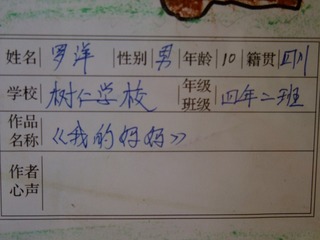 姓名 罗洋 性别 男 年龄 10 籍贯 四川
学校 树仁学校 年级班级 四年二班
作品名称 《我的妈妈》
作者心声